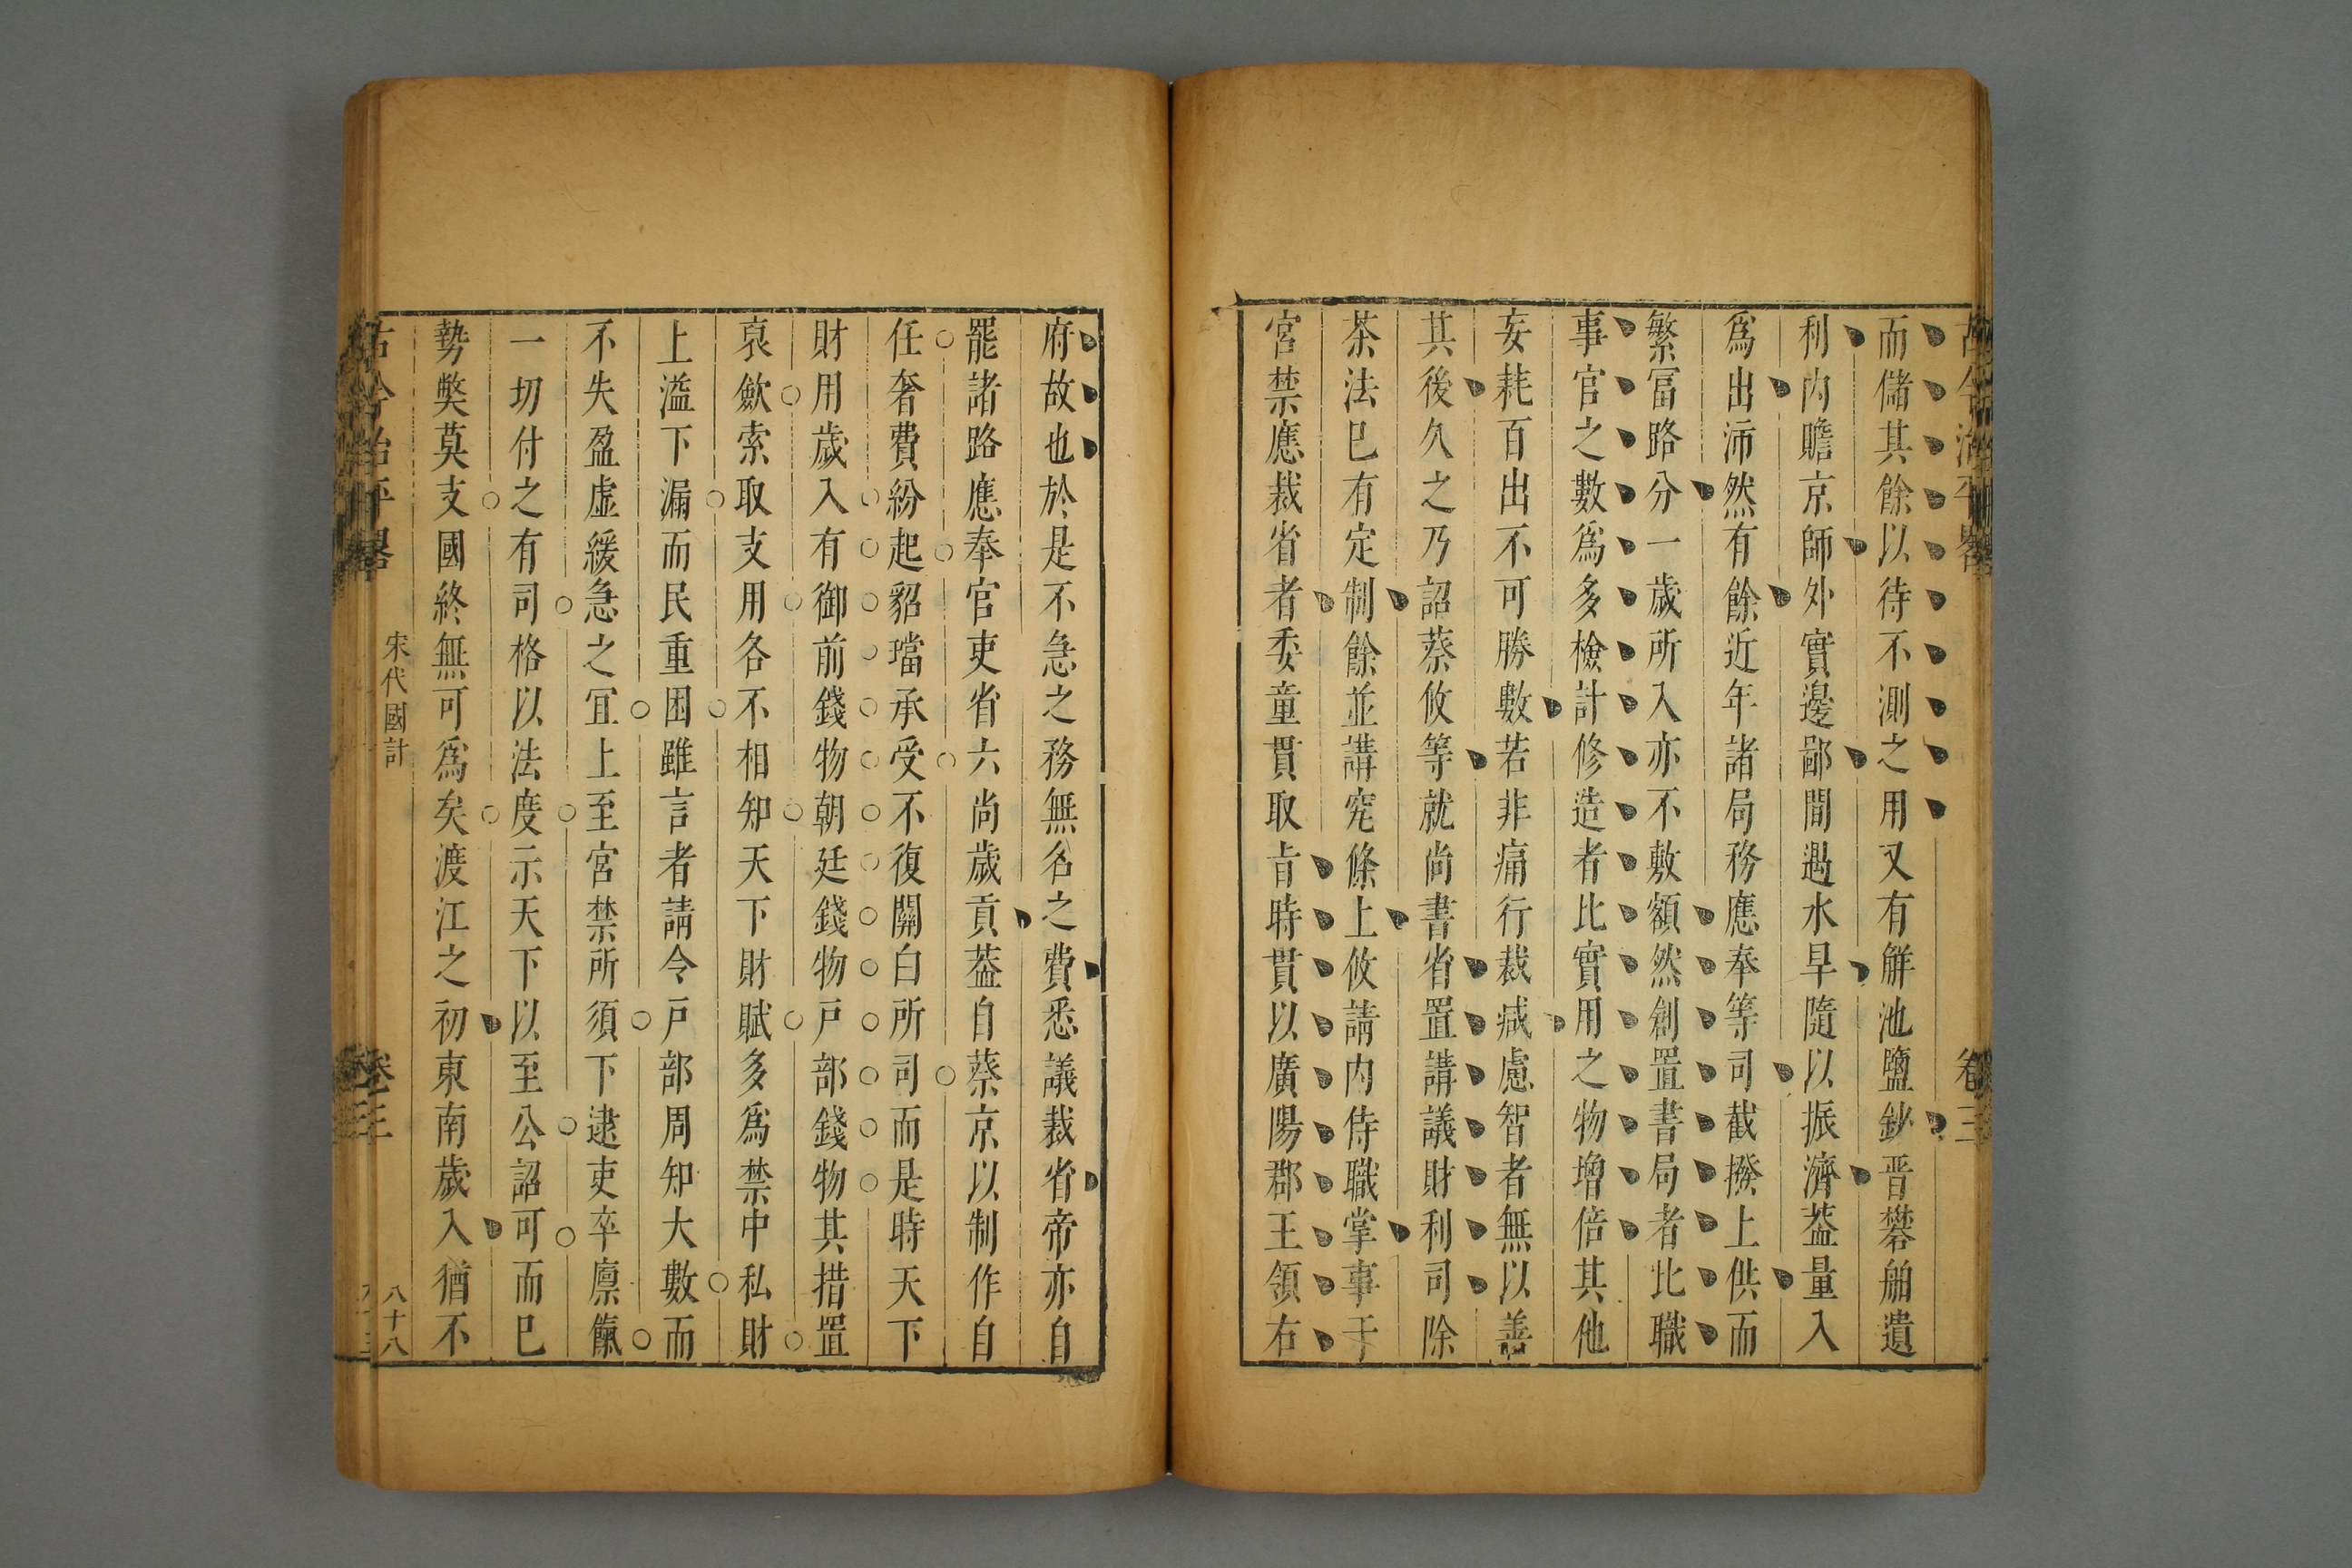 古今治平畧 卷三
而儲其餘以待不測之用又有解池鹽鈔晋礬舶遺
利内贍京師外實邊鄙間遇水旱隨以振濟葢量入
爲出沛然有餘近年諸局務應奉等司截撥上供而
繁冨路分一歲所入亦不敷額然創置書局者比職
事官之數爲多檢計修造者比實用之物增倍其他
妄耗百出不可勝數若非痛行裁减慮智者無以善
其後久之乃詔蔡攸等就尚書省置講議財利司除
茶法巳有定制餘並講究條上攸請内侍職掌事于
宮禁應裁省者委童貫取㫖時貫以廣陽郡王領右
府故也於是不急之務無名之費悉議裁省帝亦自
罷諸路應奉官吏省六尚歲貢葢自蔡京以制作自
任奢費紛起貂璫承受不復關白所司而是時天下
財用歲入有御前錢物朝廷錢物戸部錢物其措置
裒歛索取支用各不相知天下財賦多爲禁中私財
上溢下漏而民重困雖言者請令戸部周知大數而
不失盈虛緩急之冝上至宮禁所須下逮吏卒廪餼
一切付之有司格以法度示天下以至公詔可而巳
勢獘莫支國終無可爲矣渡江之初東南歲入猶不
古今治平畧 宋代國計 卷三 八十八